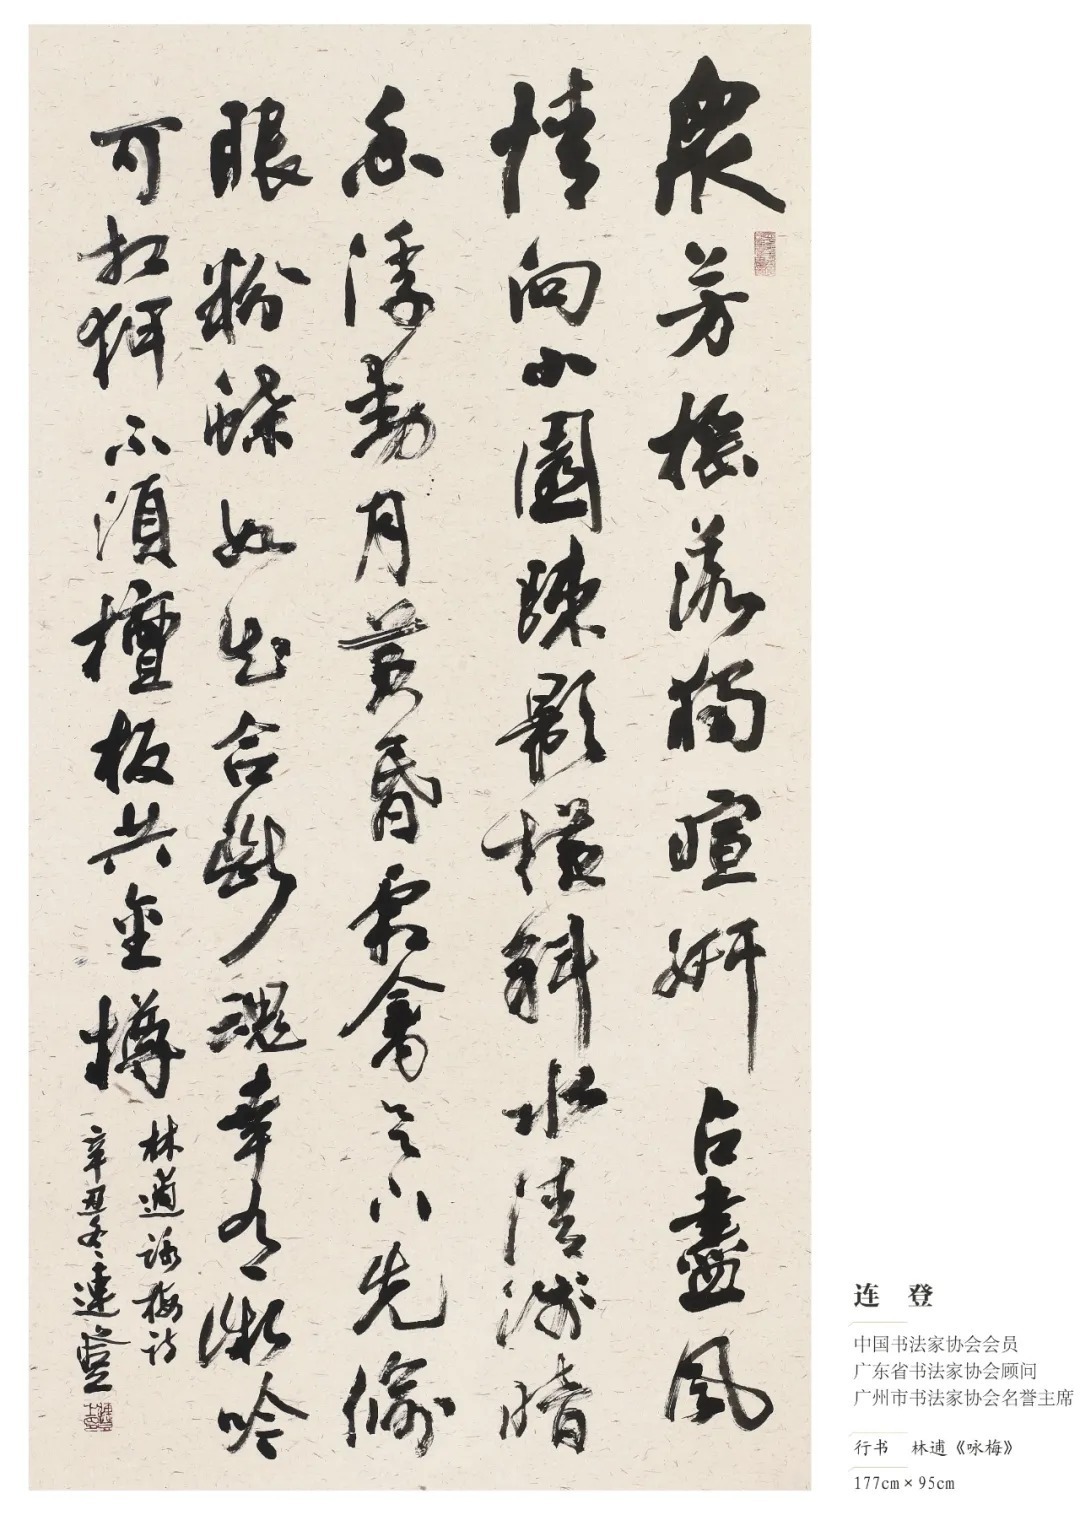 衆芳搖落獨暄妍占盡風
情向小園疎影橫斜水清淺暗
香浮動月黄昏霜禽欲下先偷
眼粉蝶如知合斷魂幸有微吟
可相狎不須檀板共金樽
林逋詠梅詩
辛丑冬連登
连 登
中国书法家协会会员
广东省书法家协会顾问
广州市书法家协会名誉主席
行书 林逋《咏梅》
177cm×95cm